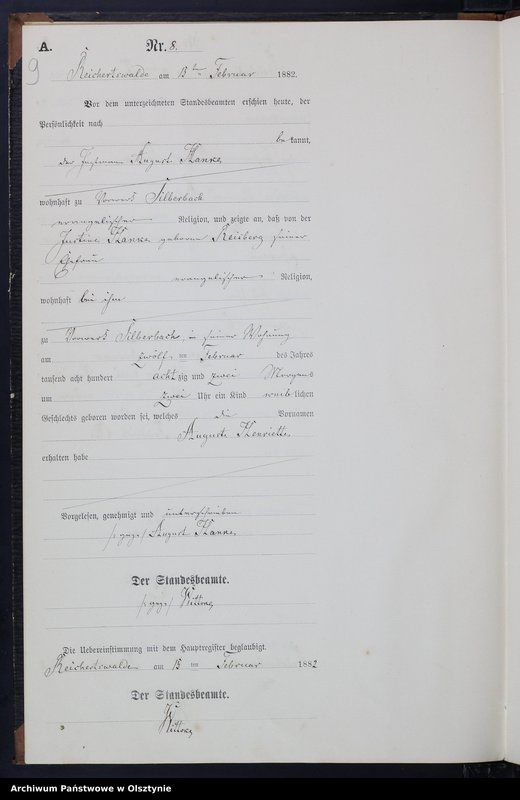 A. Nr. 8.
9
Reichertswalde am 13ten Februar 1882.
Vor dem unterzeichneten Standesbeamten erschien heute, der
Persönlichkeit nach
be kannt,
der Instmann August Hanke,
wohnhaft zu Vorwerk Silberbach
evangelischer Religion, und zeigte an, daß von der
Justine Hanke geborne Reisberg seiner
Ehefrau
evangelischer Religion,
wohnhaft bei ihm
zu Vorwerk Silberbach, in seiner Wohnung
am zwölften Februar des Jahres
tausend acht hundert achtzig und zwei Morgens
um zwei Uhr ein Kind weiblichen
Geschlechts geboren worden sei, welches die Vornamen
Auguste Henriette
erhalten habe
Vorgelesen, genehmigt und unterschrieben
/: gez: / August Hanke,
Der Standesbeamte.
/: gez: /
Die Uebereinstimmung mit dem Hauptregister beglaubigt.
Reichertswalde am 13ten Februar 1882
Der Standesbeamte.
Archiwum Państwowe w Olsztynie